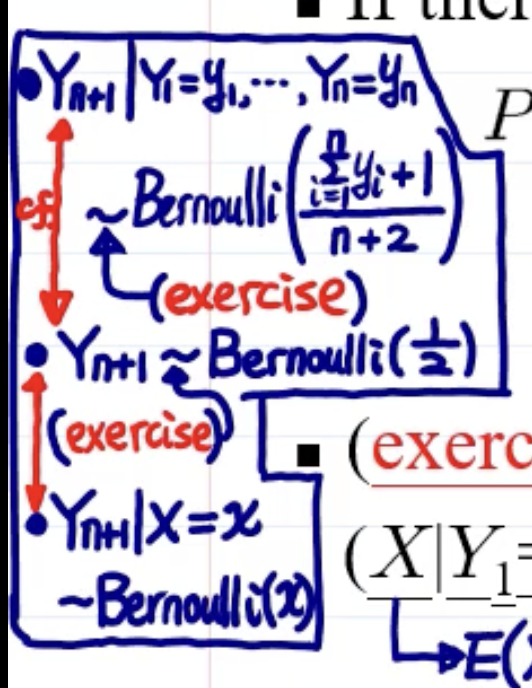 ▪ If ther
• Yₙ₊₁ | Y₁=y₁, ⋯, Yₙ=yₙ
P
cf
~ Bernoulli ( (∑ᵢ₌₁ⁿ yᵢ + 1) / (n+2) )
(exercise)
• Yₙ₊₁ ~ Bernoulli(1/2)
(exercise)
▪ (exerc
• Yₙ₊₁|X=x
(X|Y₁=
~Bernoulli(x)
E(